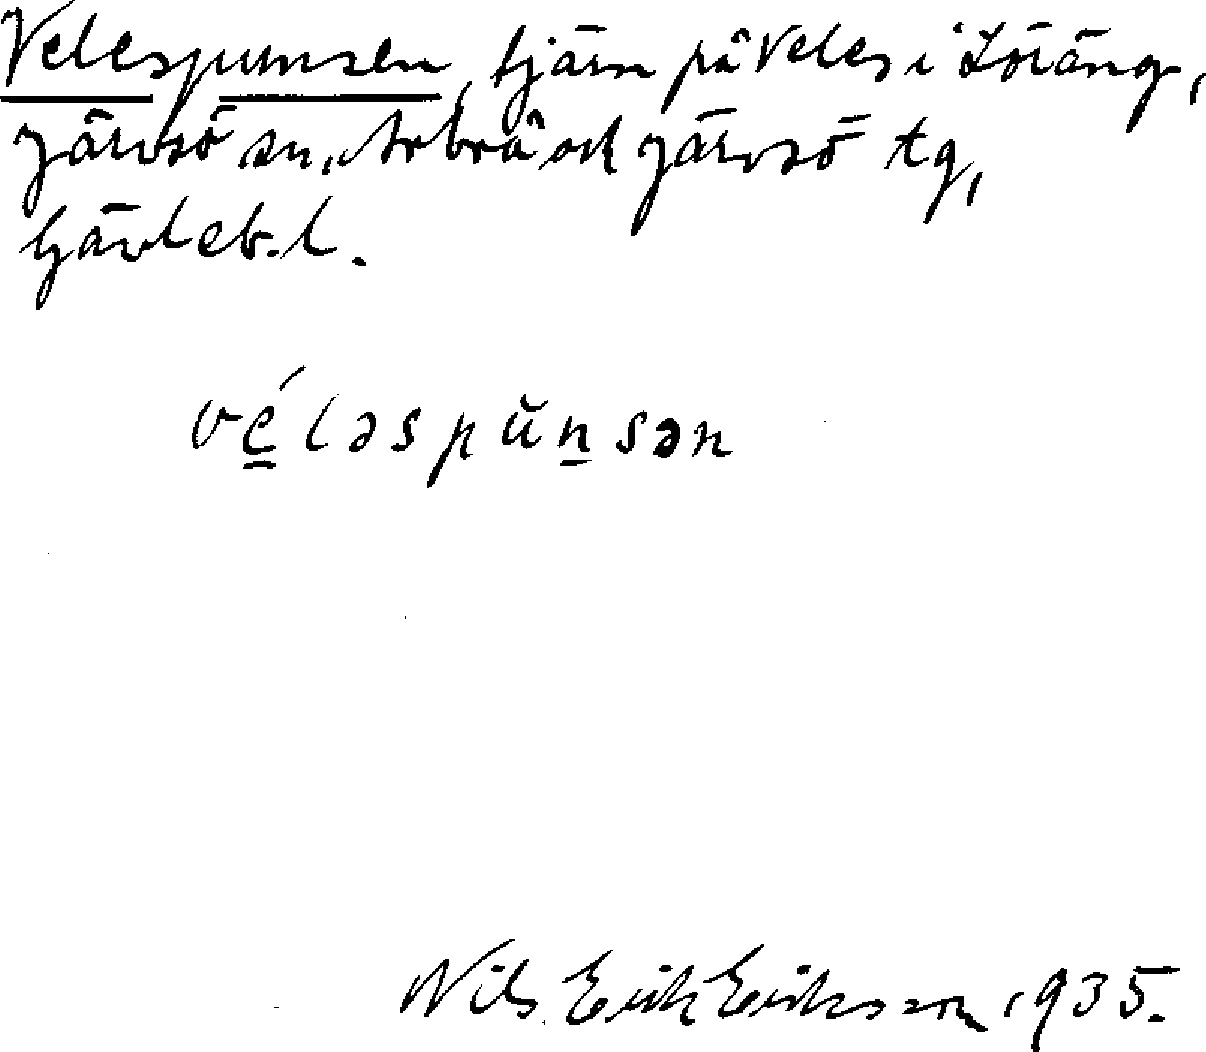 Velespumsen, tjärn på Veles i Löräng,
Järvsö sn, Arbrå och Järvsö tg,
Gävleb. l.
vé̳ləspŭn̲sən
Nils Erik Eriksson 1935.